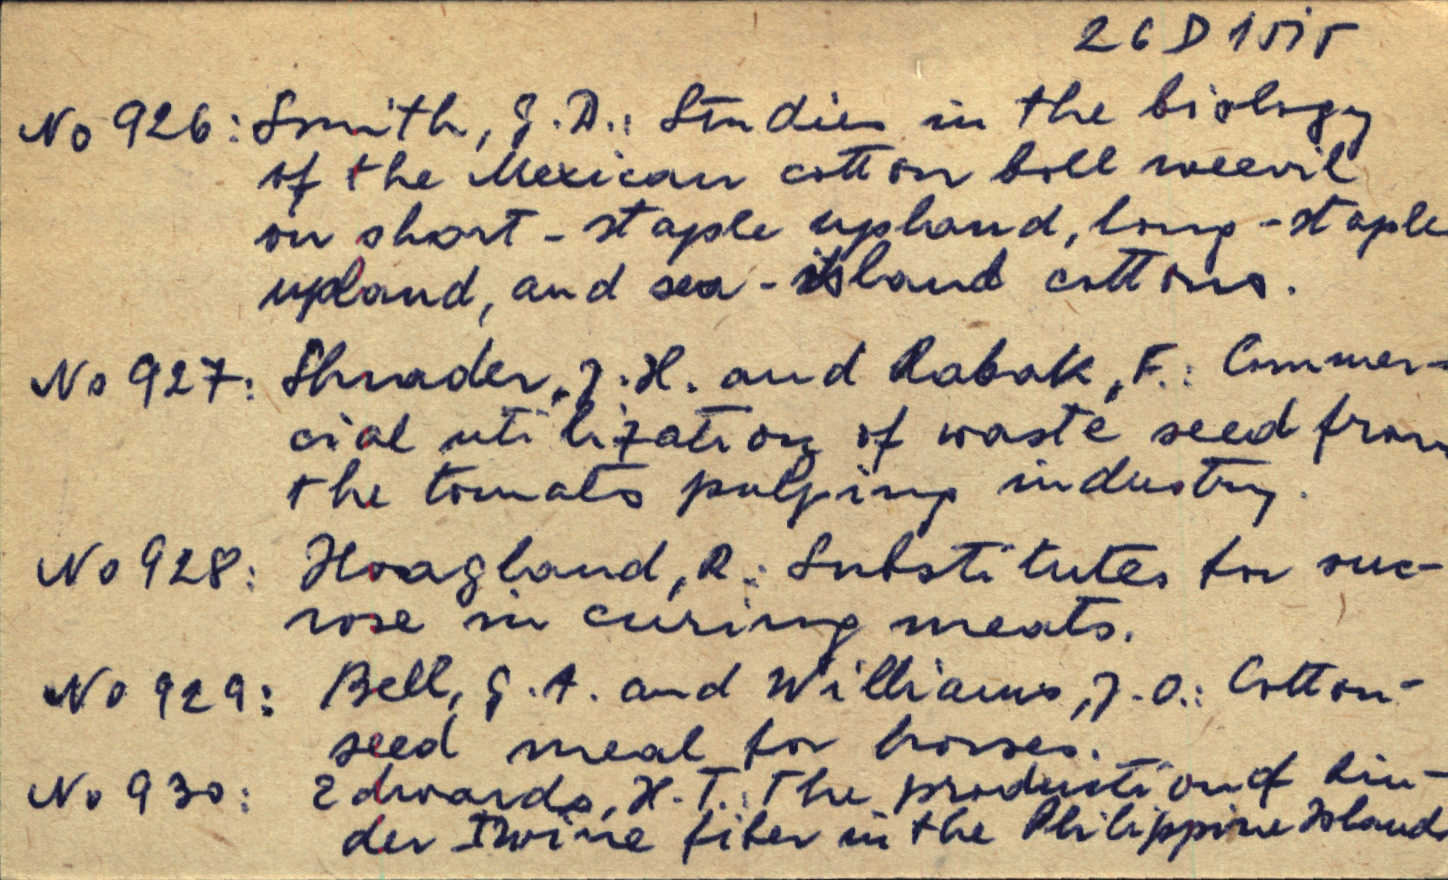 26 D 1515
No 926: Smith, G. D.: Studies in the biology
of the Mexican cotton boll weevil
on short-staple upland, long-staple
upland, and sea-island cottons.
No 927: Shrader, J. H. and Rabak, F.: Commer-
cial utilization of waste seed from
the tomato pulping industry.
No 928: Hoagland, R.: Substitutes for suc-
rose in curing meats.
No 929: Bell, G. A. and Williams, J. O.: Cotton-
seed meal for horses.
No 930: Edwards, H. T.: The production of bin-
der Twine fiber in the Philippine Islands